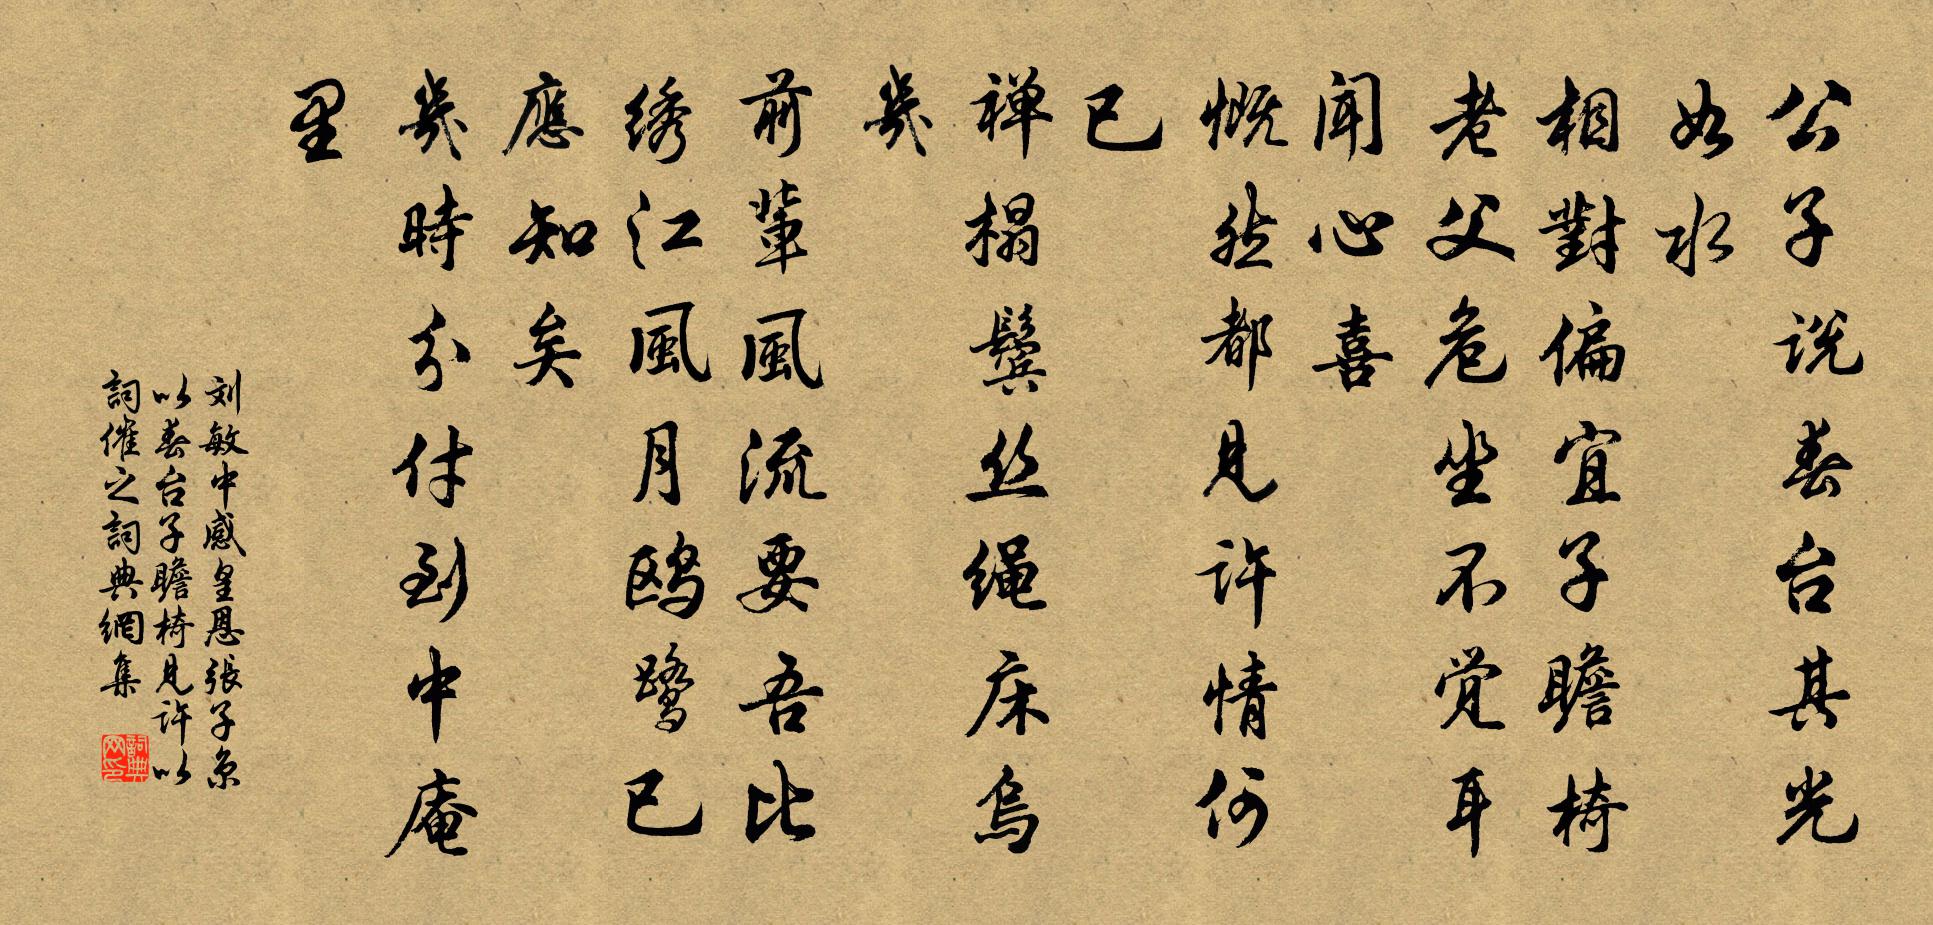 公子说春台其光
如水
相對偏宜子瞻椅
老父危坐不觉耳
闻心喜
慨然都見许情何
已
禅榻鬓丝绳床乌
幾
前輩風流要吾比
绣江風月鸥鹭已
應知矣
幾時分付到中庵
里
刘敏中感皇恩張子京
以春台子瞻椅見许以
詞催之詞典網集
詞典网印